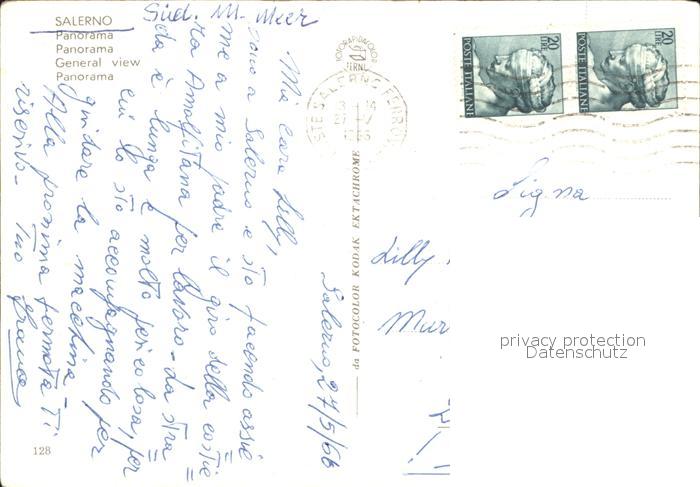 SALERNO
Panorama
Panorama
General view
Panorama
Süd. M. Meer
Mia cara Lilly,
sono a Salerno e sto facendo assie=
me a mio padre il giro della costie=
ra Amalfitana per lavoro - da stra=
da è lunga e molto pericolosa, per
cui lo sto accompagnando per
guidare la macchina -
Alla prossima fermata Ti
riscrivo - Tuo Franco
Salerno, 27/5/66
128
da FOTOCOLOR KODAK EKTACHROME
SALERNO FERROVIA
POSTE ITALIANE
20 LIRE
POSTE ITALIANE
20 LIRE
Signa
Lilly
Mur
privacy protection
Datenschutz